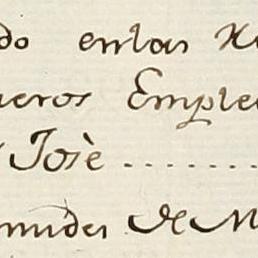 do enlas
ueros Emple
Josè ..........
mudes de M